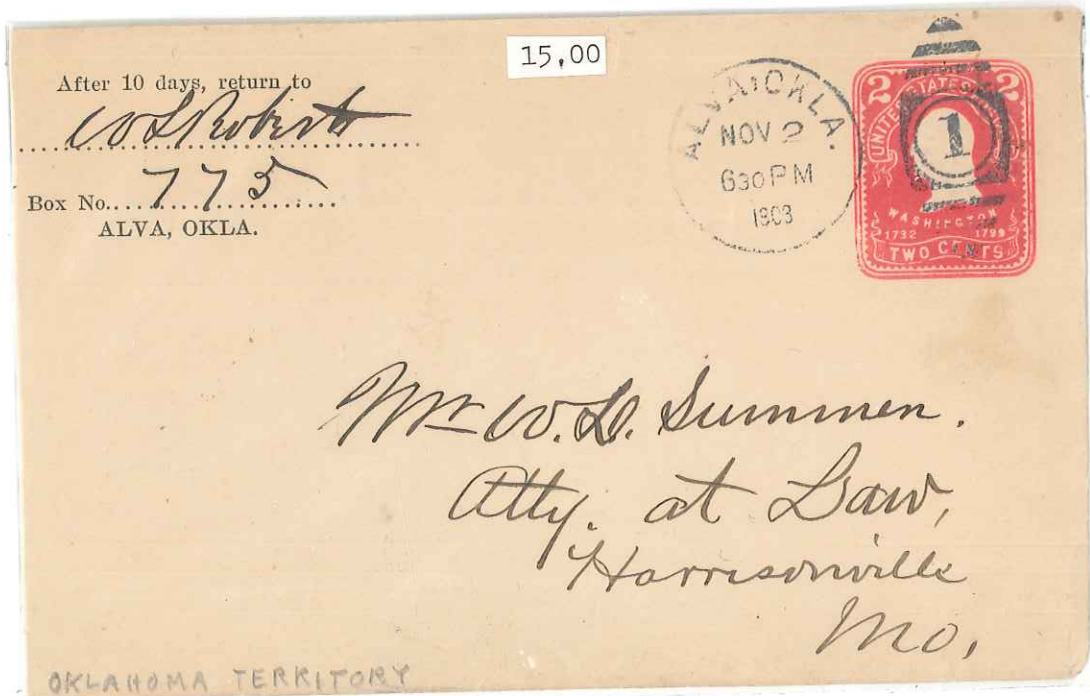 15,00
After 10 days, return to
W L Roberts
Box No. 775
ALVA, OKLA.
ALVA, OKLA.
NOV 2
630 PM
1903
1
2 2
UNITED STATES
WASHINGTON
1732 1799
TWO CENTS
Mr W. L. Summen.
Atty. at Law,
Harrisonville
Mo,
OKLAHOMA TERRITORY